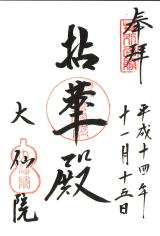 奉拝
平成十四年
十一月十五日
拈華殿
大仙院